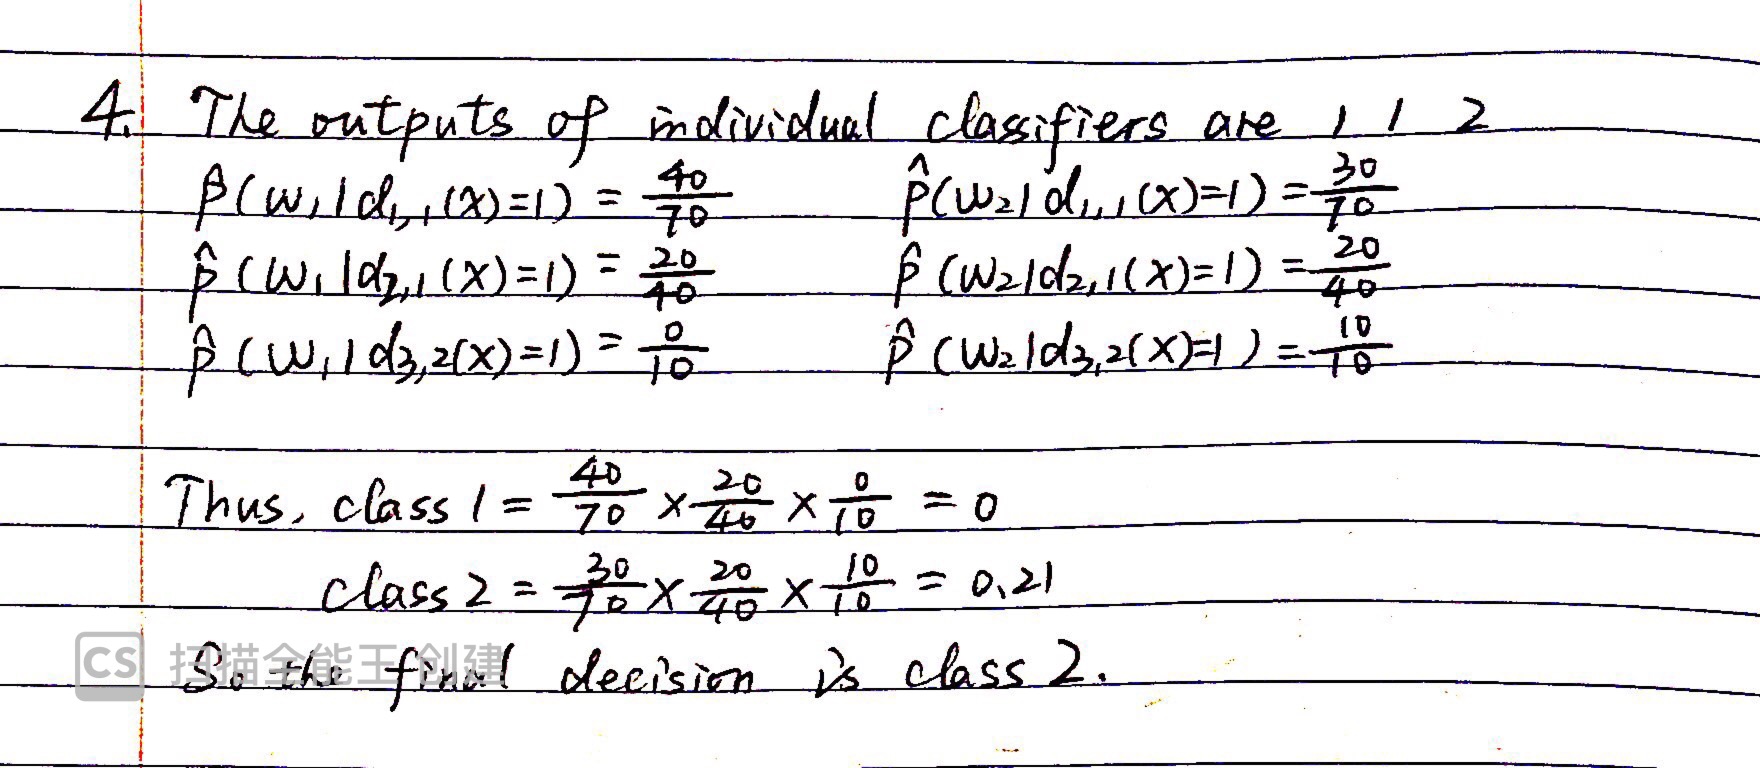 4. The outputs of individual classifiers are 1 1 2
p̂(w₁|d₁,₁(x)=1) = 40/70 p̂(w₂|d₁,₁(x)=1) = 30/70
p̂(w₁|d₂,₁(x)=1) = 20/40 p̂(w₂|d₂,₁(x)=1) = 20/40
p̂(w₁|d₃,₂(x)=1) = 0/10 p̂(w₂|d₃,₂(x)=1) = 10/10
Thus, class 1 = 40/70 × 20/40 × 0/10 = 0
class 2 = 30/70 × 20/40 × 10/10 = 0.21
So the final decision is class 2.
CS 扫描全能王 创建